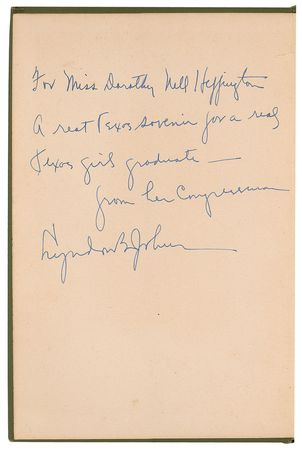 For Miss Dorothy Nell Heffington
A real Texas sovenir for a real
Texas girl graduate —
from her Congressman
Lyndon B Johnson